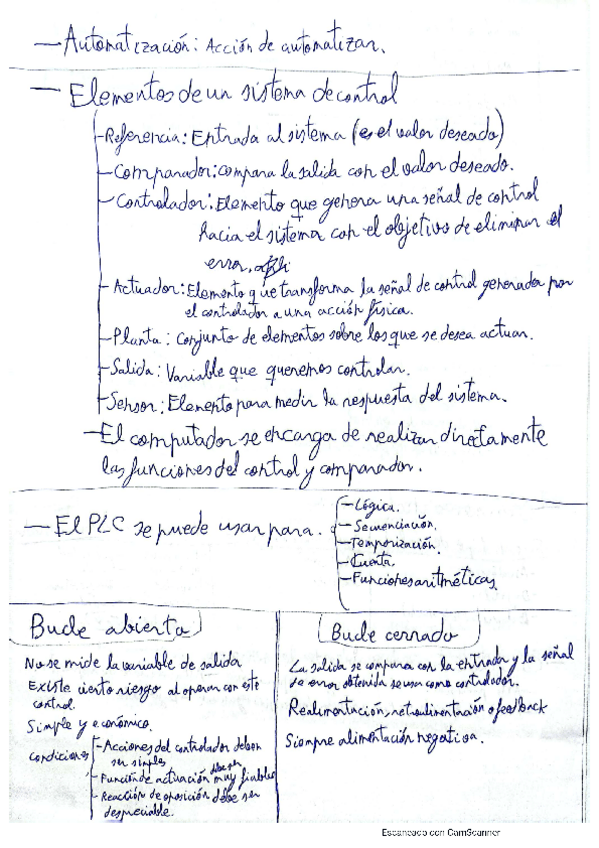 — Automatización: Acción de automatizar.
— Elementos de un sistema de control
- Referencia: Entrada al sistema (es el valor deseado)
- Comparador: compara la salida con el valor deseado.
- Controlador: Elemento que genera una señal de control
hacia el sistema con el objetivo de eliminar el
error.
- Actuador: Elemento que transforma la señal de control generada por
el controlador a una acción física.
- Planta: Conjunto de elementos sobre los que se desea actuar.
- Salida: Variable que queremos controlar.
- Sensor: Elemento para medir la respuesta del sistema.
- El computador se encarga de realizar directamente
las funciones del control y comparador.
— El PLC se puede usar para.
- Lógica.
- Secuenciación.
- Temporización.
- Cuenta.
- Funciones aritméticas.
Bucle abierto
No se mide la variable de salida
Existe cierto riesgo al operar con este
control.
Simple y económico.
Condiciones
- Acciones del controlador deben
ser simples
- Función de actuación debe ser muy fiables
- Reacción de oposición debe ser
despreciable.
Bucle cerrado
La salida se compara con la entrada y la señal
de error obtenida se usa como controlador.
Realimentación, retroalimentación o feedback
Siempre alimentación negativa.
Escaneado con CamScanner